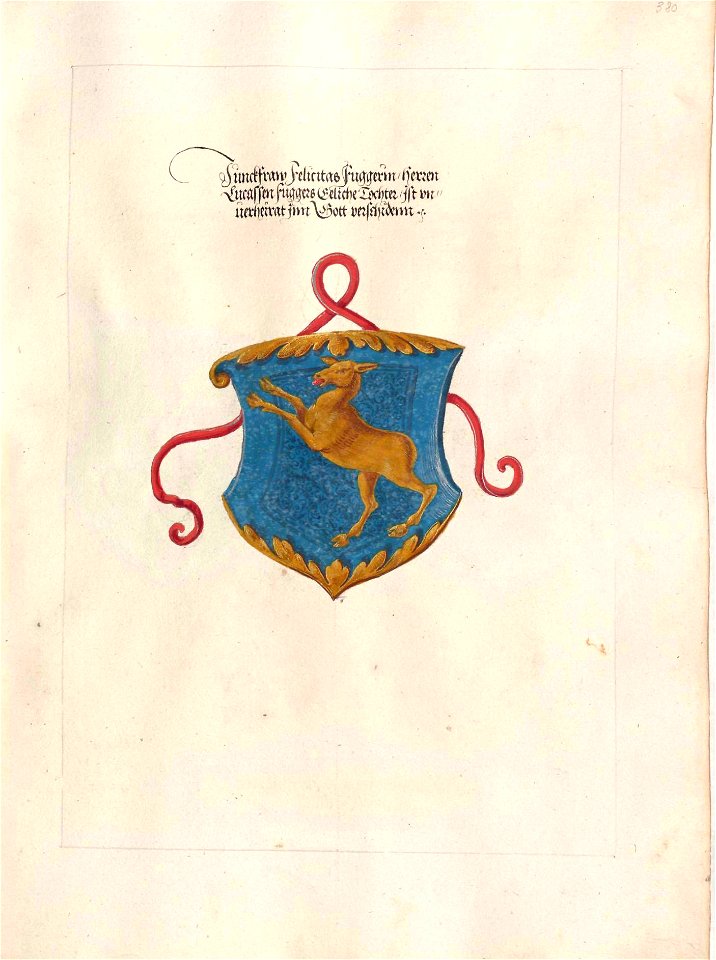 380
Junckfraw Felicitas Fuggerin / Herren
Lucassen Fuggers Eeliche Tochter / ist vn=
uerheirat jnn Gott verschidenn